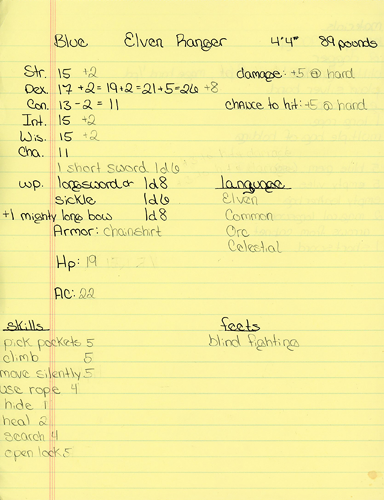 Blue Elven Ranger 4'4" 89 pounds
Str. 15 +2 damage: +5 @ hand
Dex. 17 +2 = 19+2 = 21+5 = 26 +8
Con. 13 - 2 = 11 chance to hit: +5 @ hand
Int. 15 +2
Wis. 15 +2
Cha. 11
1 short sword 1d6
wp. longsword 1d8 language
sickle 1d6 Elven
+1 mighty long bow 1d8 Common
Armor: chainshirt Orc
Celestial
Hp: 19
AC: 22
skills feets
pick pockets 5 blind fighting
climb 5
move silently 5
use rope 4
hide 1
heal 2
search 4
open lock 5